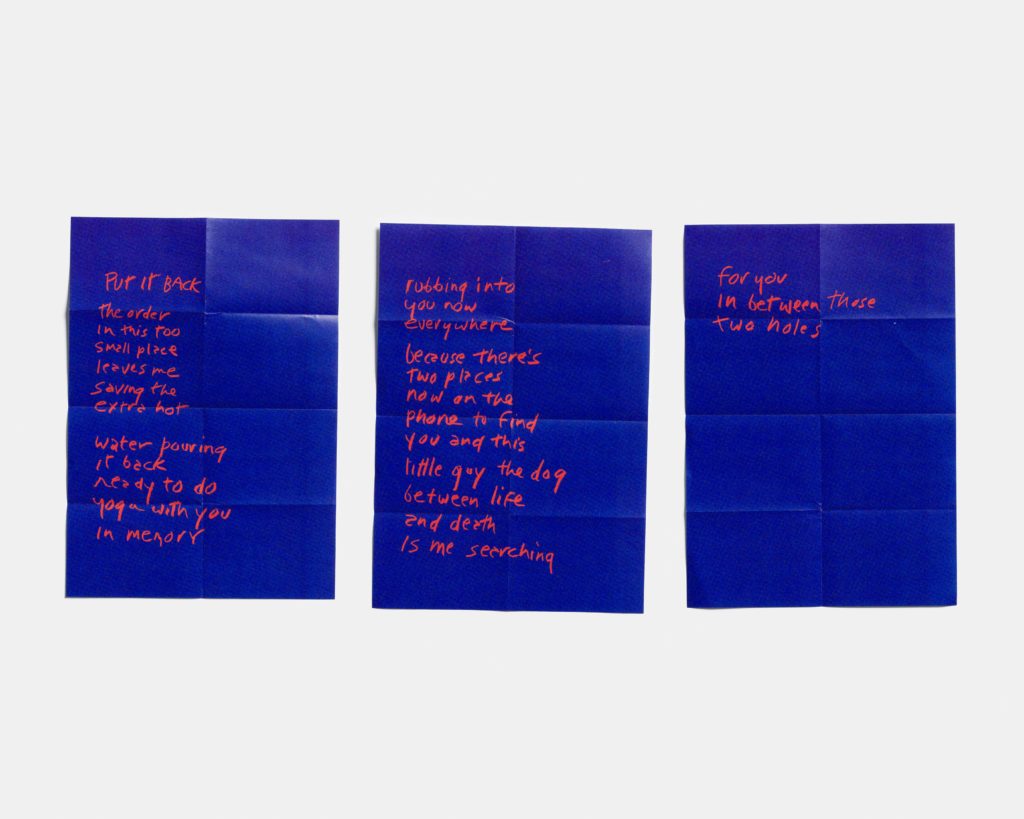 PUT IT BACK
the order
in this too
small place
leaves me
saving the
extra hot
water pouring
it back
ready to do
yoga with you
in memory
rubbing into
you now
everywhere
because there's
two places
now on the
phone to find
you and this
little guy the dog
between life
and death
is me searching
for you
in between those
two holes